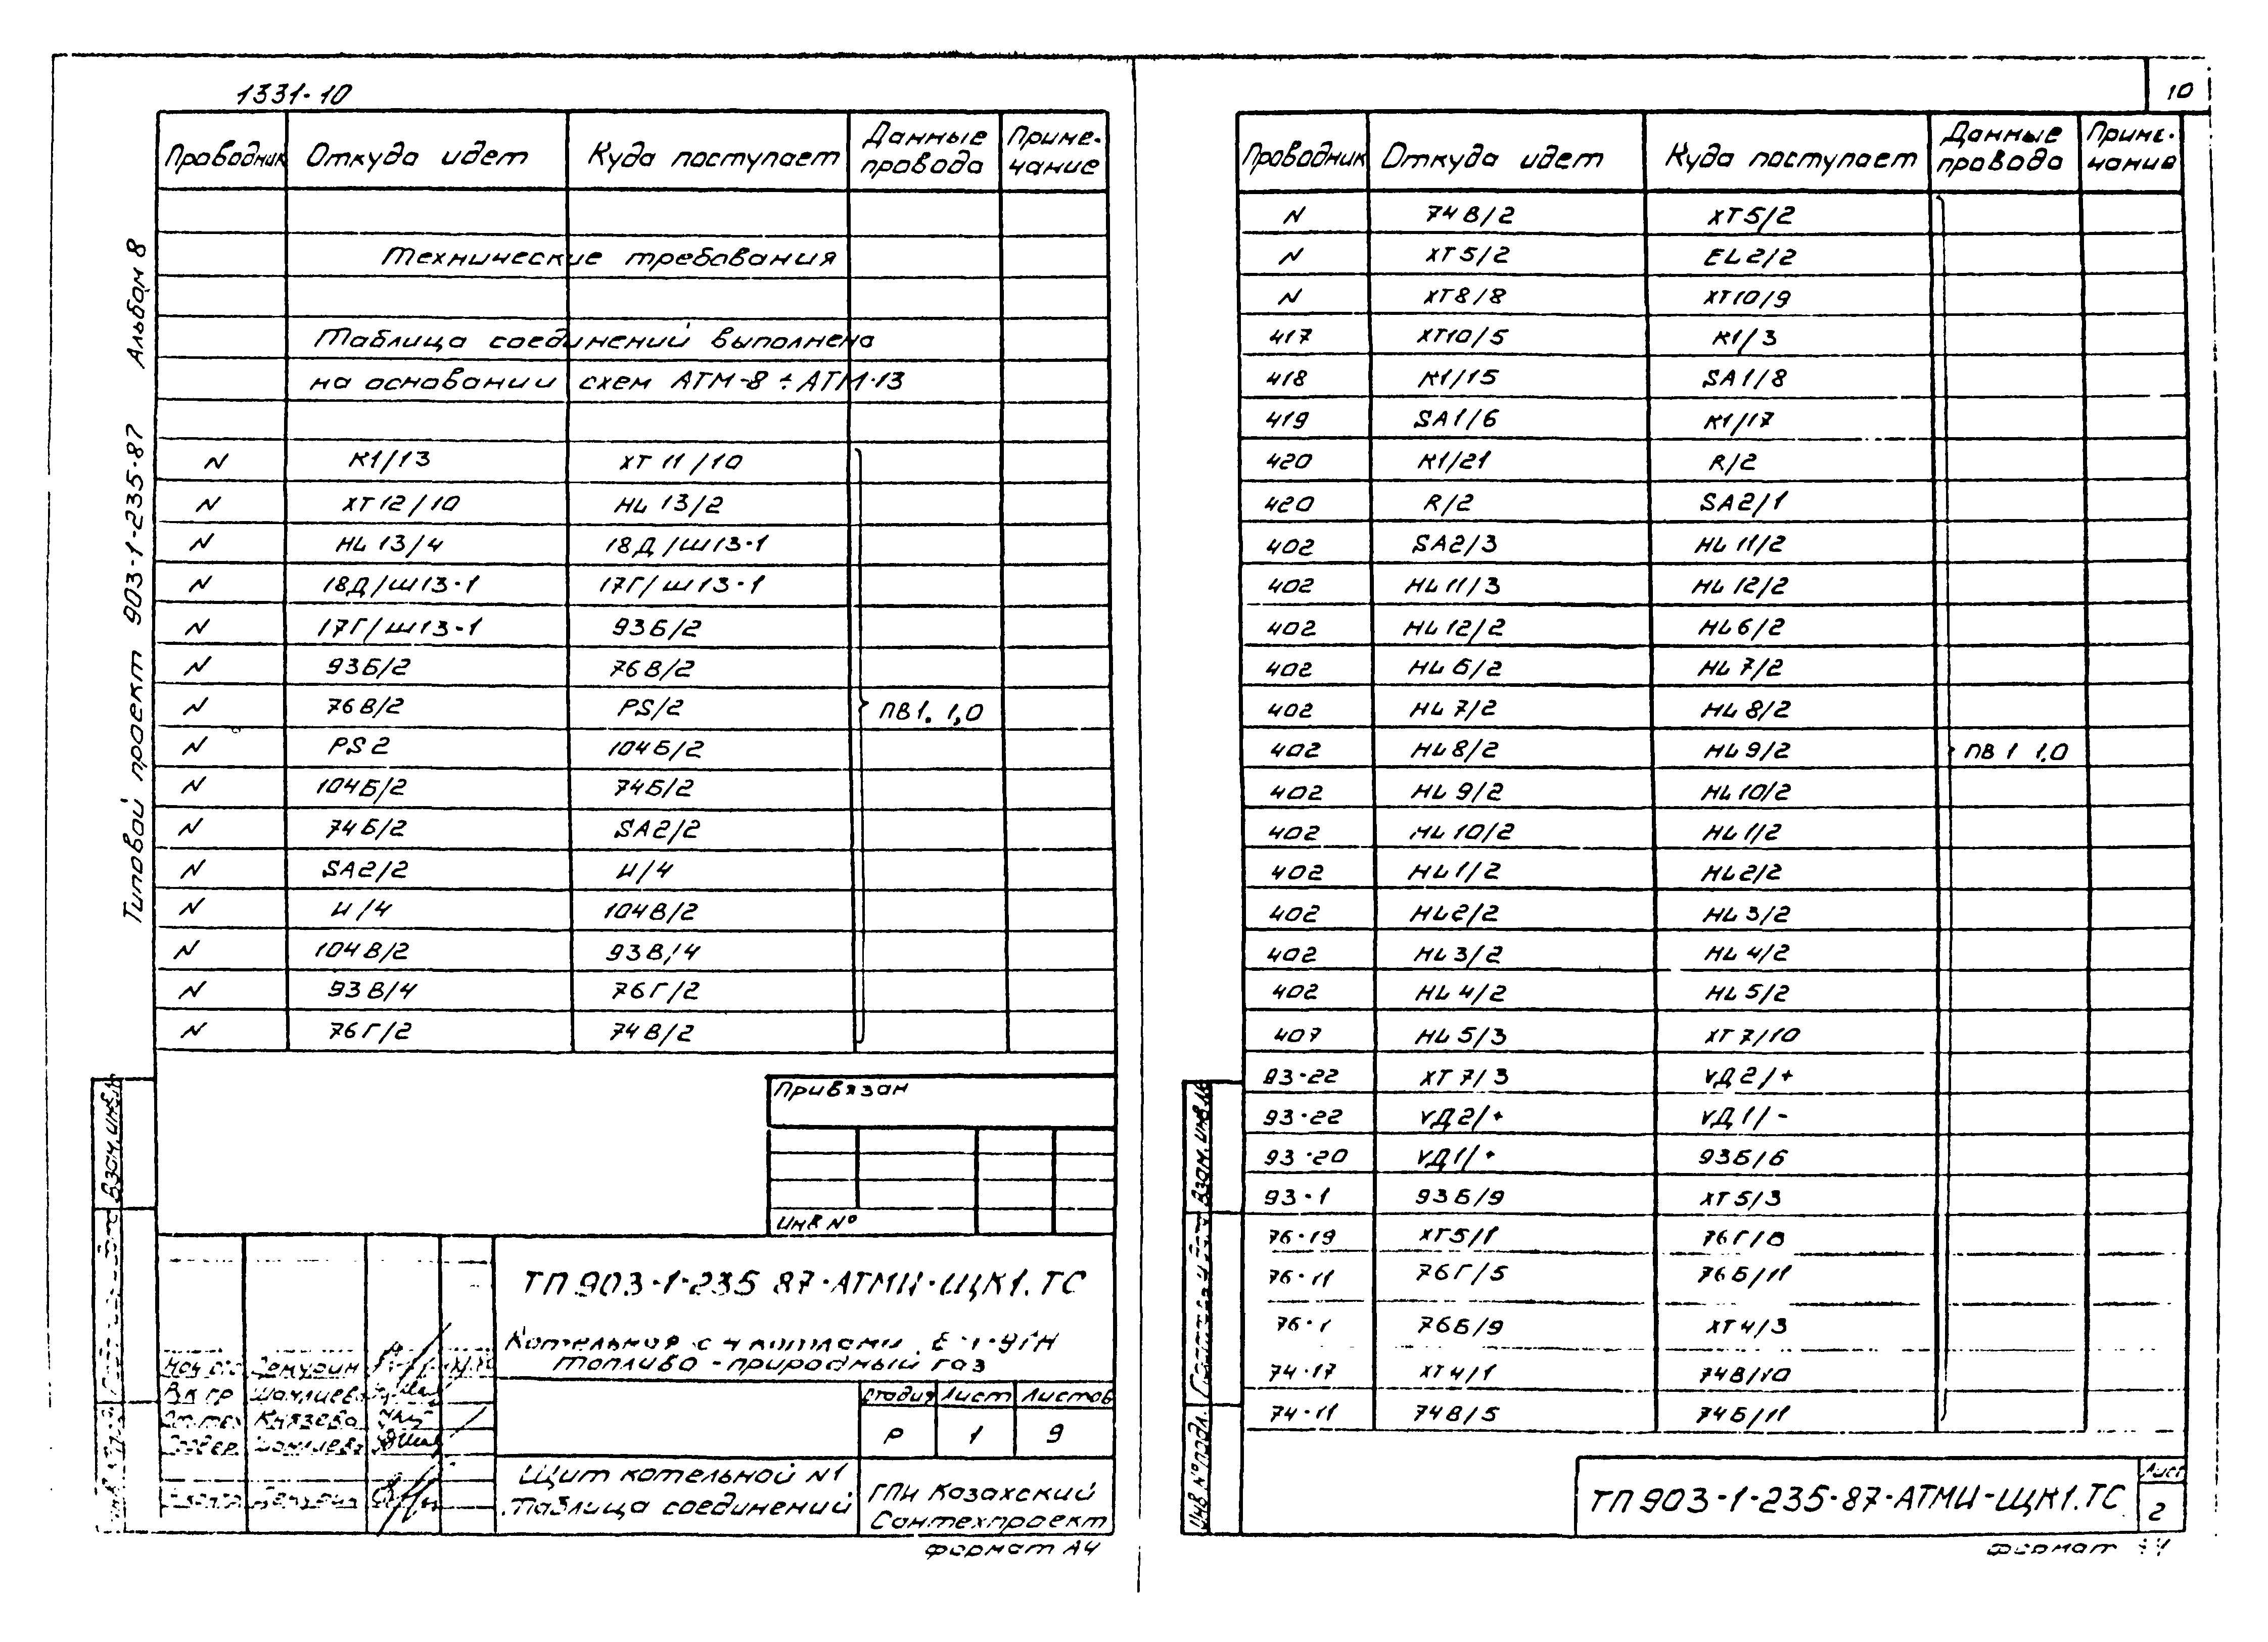 1331-10
Проводник Откуда идет Куда поступает Данные провода Приме-чание
Технические требования
Таблица соединений выполнена
на основании схем АТМ-8 ÷ АТМ-13
N К1/13 ХТ 11/10
N ХТ 12/10 HL 13/2
N HL 13/4 18Д/Ш13-1
N 18Д/Ш13-1 17Г/Ш13-1
N 17Г/Ш13-1 93Б/2
N 93Б/2 76В/2
N 76В/2 PS/2 ПВ1. 1,0
N PS 2 104Б/2
N 104Б/2 74Б/2
N 74Б/2 SA2/2
N SA2/2 И/4
N И/4 104В/2
N 104В/2 93В/4
N 93В/4 76Г/2
N 76Г/2 74В/2
Типовой проект 903-1-235-87 Альбом 8
Взам. инв. №
Привязан
Инв №
ТП 903-1-235 87-АТМИ-ЩК1.ТС
Котельная с 4 котлами Е-1-9ГН
топливо - природный газ
Стадия Лист Листов
Р 1 9
Князева
Щит котельной N1
Таблица соединений
ГПИ Казахский
Сантехпроект
формат А4
10
Проводник Откуда идет Куда поступает Данные провода Приме-чание
N 74В/2 ХТ5/2
N ХТ5/2 EL2/2
N ХТ8/8 ХТ10/9
417 ХТ10/5 К1/3
418 К1/15 SA1/8
419 SA1/6 К1/17
420 К1/21 R/2
420 R/2 SA2/1
402 SA2/3 HL 11/2
402 HL 11/3 HL 12/2
402 HL 12/2 HL6/2
402 HL 6/2 HL 7/2
402 HL 7/2 HL 8/2
402 HL8/2 HL 9/2 ПВ 1 1,0
402 HL 9/2 HL 10/2
402 HL 10/2 HL 1/2
402 HL 1/2 HL2/2
402 HL2/2 HL 3/2
402 HL 3/2 HL 4/2
402 HL 4/2 HL 5/2
407 HL 5/3 ХТ 7/10
93-22 ХТ 7/3 VД2/+
93-22 VД2/+ VД1/-
93-20 VД1/+ 93Б/6
93-1 93Б/9 ХТ5/3
76-19 ХТ5/1 76Г/8
76-11 76Г/5 76Б/11
76-1 76Б/9 ХТ4/3
74-17 ХТ4/1 74В/10
74-11 74В/5 74Б/11
Взам. инв №
Инв № подл.
ТП 903-1-235-87-АТМИ-ЩК1.ТС
Лист
2
формат